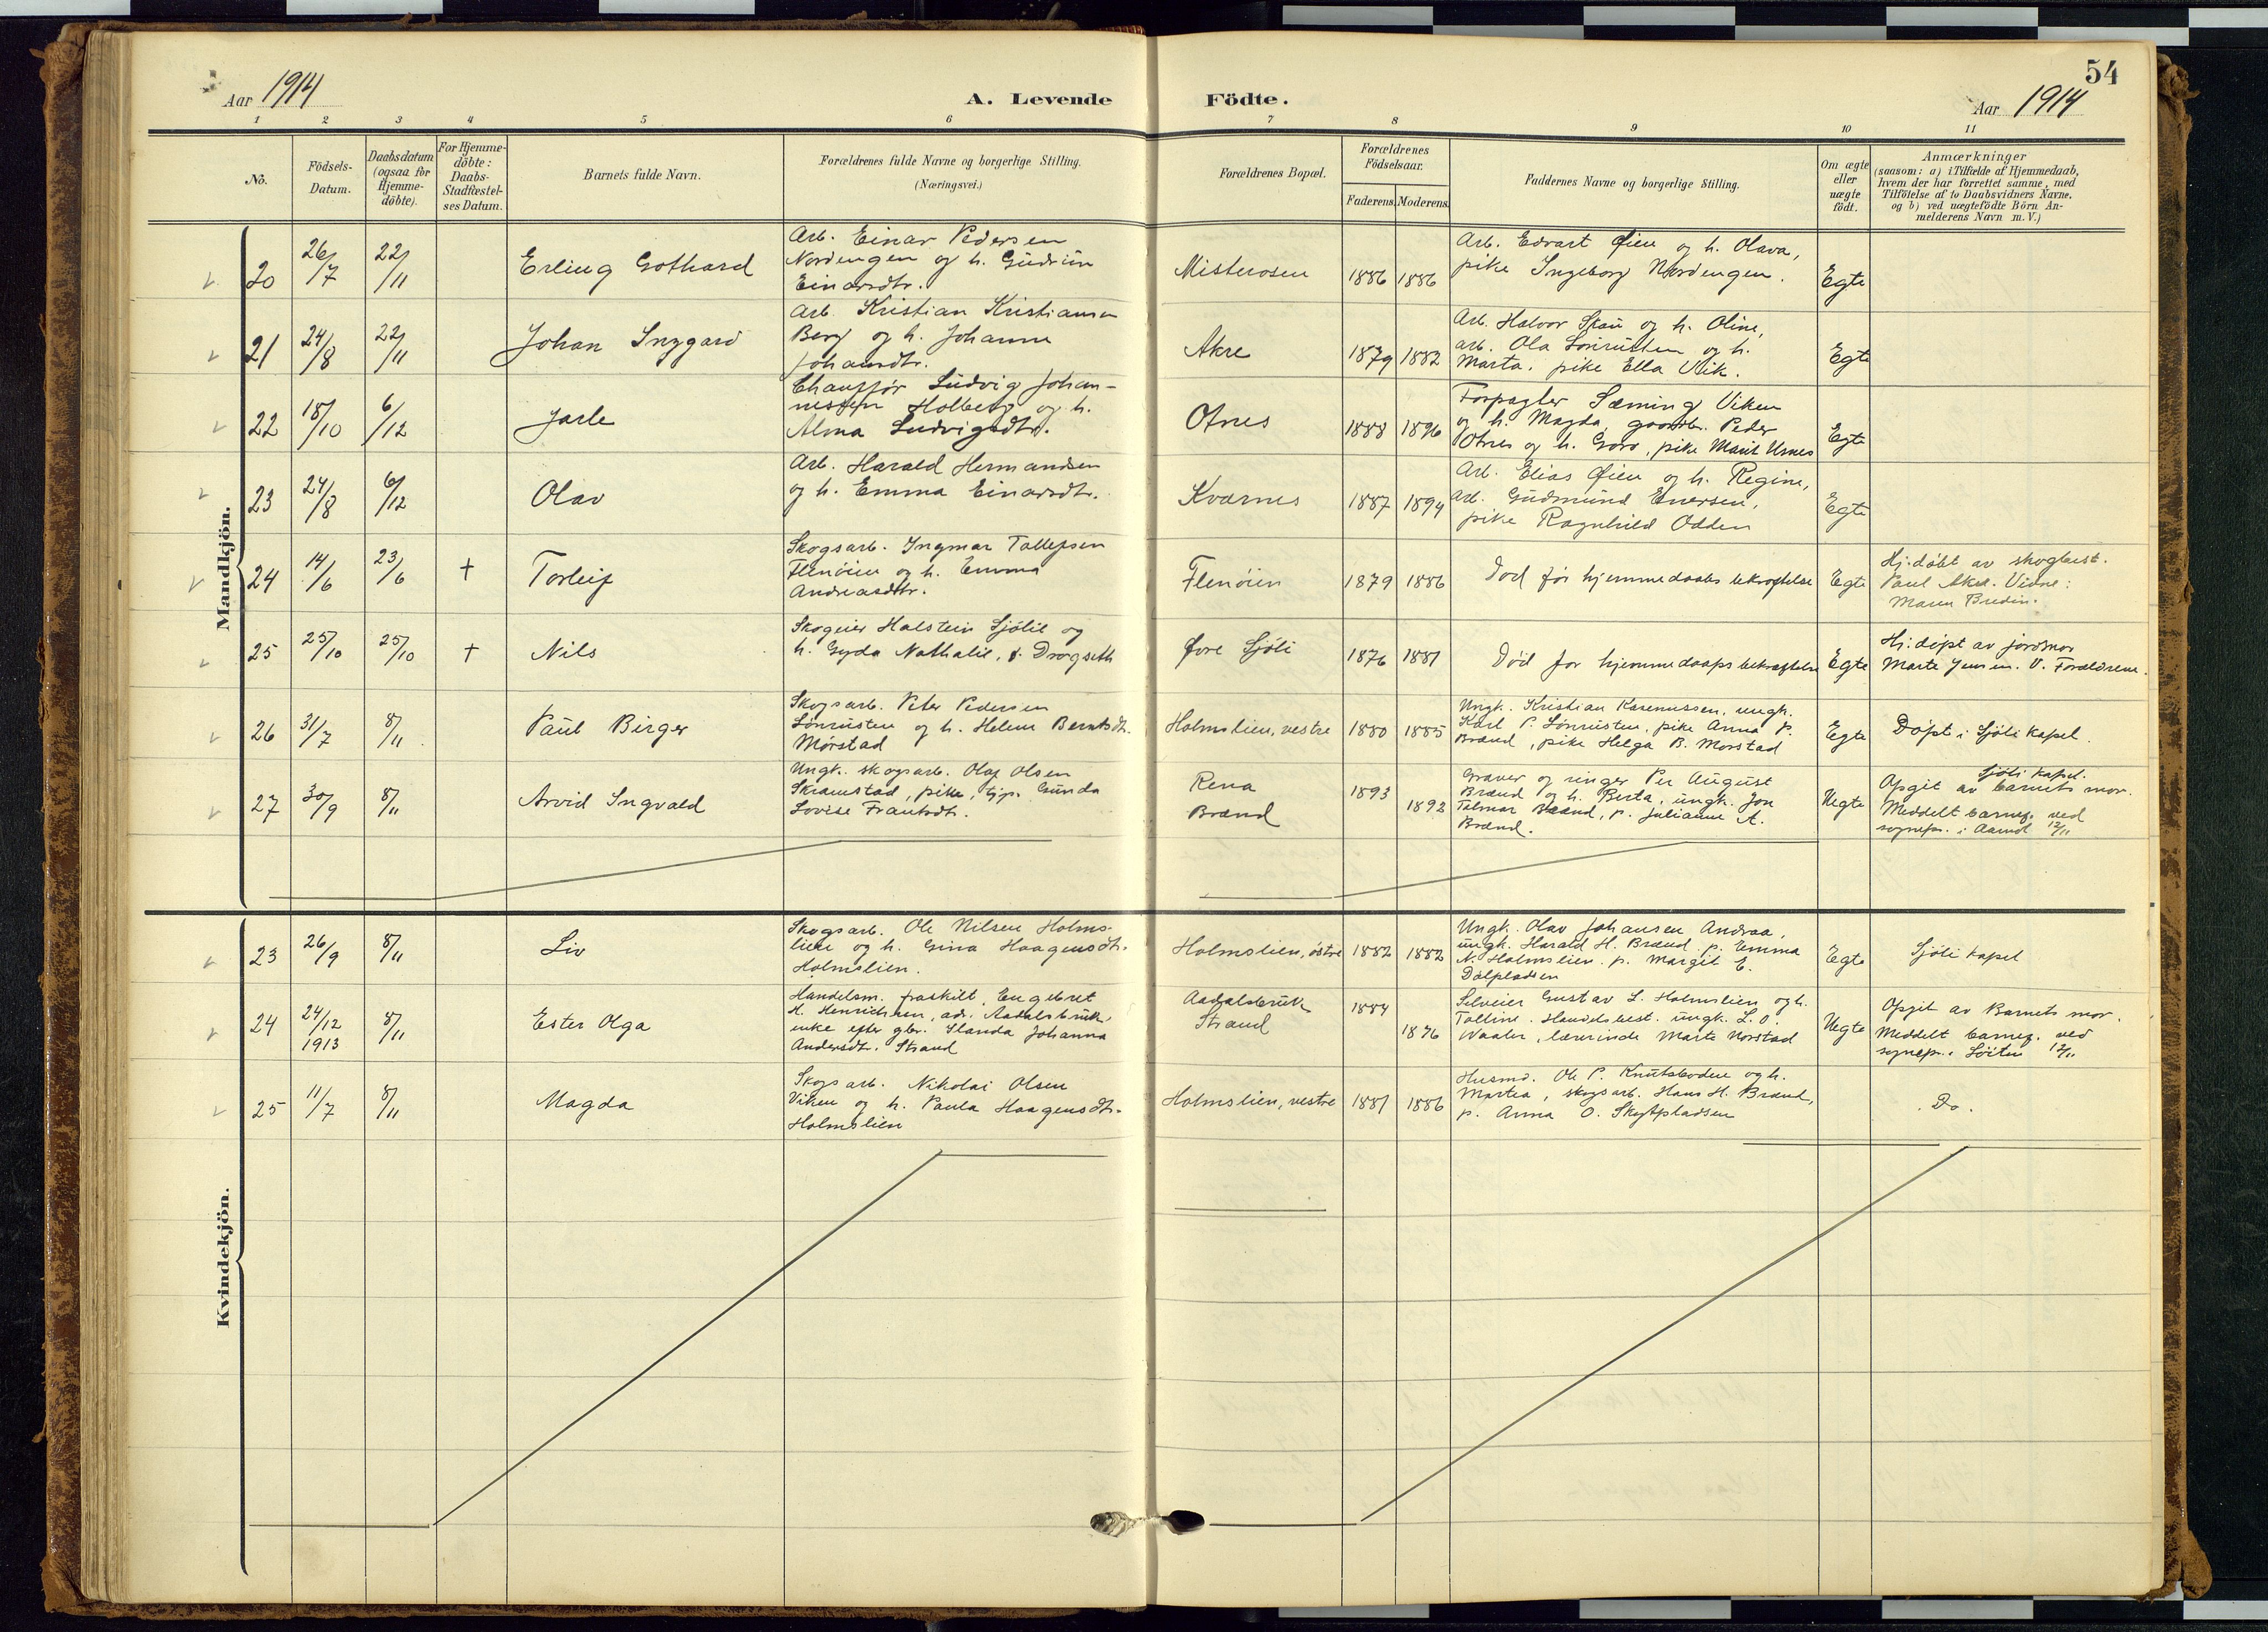 54
Aar 1914
A. Levende Födte.
Aar 1914
1 2 3 4 5 6 7 8 9 10 11
No.
Födsels-
Datum.
Daabsdatum
(ogsaa for
Hjemme-
döbte).
For Hjemme-
döbte:
Daabs-
Stadfæstel-
ses Datum.
Barnets fulde Navn.
Forældrenes fulde Navne og borgerlige Stilling.
(Næringsvei.)
Forældrenes Bopæl.
Forældrenes
Födselsaar.
Faderens. Moderens.
Faddernes Navne og borgerlige Stilling.
Om ægte
eller
uægte
födt.
Anmærkninger
(saasom: a) i Tilfælde af Hjemmedaab,
hvem der har forrettet samme, med
Tilföielse af to Daabsvidners Navne,
og b) ved uægtefödte Börn An-
melderens Navn m. V.)
Mandkjön.
20 26/7 22/11 Erling Gothard
Arb. Einar Pedersen
Nordengen og h. Gudrun
Einarsdtr.
Misterosen 1886 1886
Arb. Edvart Øien og h. Olava,
pike Ingeborg Nordengen.
Egte
21 24/8 22/11 Johan Snygard
Arb. Kristian Kristiansen
Berg og h. Johanne
Johansdtr.
Akre 1879 1882
Arb. Halvor Skau og h. Oline,
arb. Ola Lønrusten og h.
Marta, pike Ella Vik.
Egte
22 18/10 6/12 Jarle
Chauffør Ludvig Johan-
nessen Holberg og h.
Alma Ludvigsdtr.
Otnes 1888 1896
Forpagter Sæming Viken
og h. Magda, gaardbr. Peder
Otnes og h. Goro, pike Marit Usnes
Egte
23 24/8 6/12 Olav
Arb. Harald Hermandsen
og h. Emma Einarsdtr.
Kvarnes 1887 1894
Arb. Elias Øien og h. Regine,
arb. Gudmund Enersen,
pike Ragnhild Odden
Egte
24 14/6 23/6 † Torleif
Skogsarb. Ingmar Tollefsen
Flenøien og h. Emma
Andreasdtr.
Flenøien 1879 1886
Død før hjemmedaabs bekræftelse
Egte
Hj. døbt av skogbest.
Paul Akre. Vidne:
Maren Bredin.
25 25/10 25/10 † Nils
Skogeier Halstein Sjølie og
h. Gyda Nathalie, f. Dragseth
Øvre Sjøli 1876 1881
Død før hjemmedaaps bekræftelse
Egte
Hj. døpt av jordmor
Marte Jensen. V. Forældrene.
26 31/7 8/11 Paul Birger
Skogsarb. Peter Pedersen
Lønrusten og h. Helene Berntsdtr.
Mørstad
Holmslien, vestre 1880 1885
Ungk. Kristian Karenussen, ungk.
Karl P. Lønrusten, pike Anna P.
Brænd, pike Helga B. Mørstad
Egte
Døpt i Sjøli kapel.
27 30/9 8/11 Arvid Ingvald
Ungk. skogsarb. Olaf Olsen
Skramstad, pike, tjp. Gunda
Lovise Frantsdtr.
Rena
Brænd
1893
1892
Graver og ringer Per August
Brænd og h. Berta, ungk. Jon
Telmar Brænd, p. Julianne A.
Brænd.
Uegte
Sjøli kapel.
Opgit av barnets mor.
Meddelt barnef. ved
sognepr. i Aamot 12/11
Kvindekjön.
23 26/9 8/11 Liv
Skogsarb. Ole Nilsen Holms-
lien og h. Gina Haagensdtr.
Holmslien.
Holmslien, østre 1882 1882
Ungk. Olav Johansen Andraa,
ungk. Harald H. Brænd p. Emma
N. Holmslien. p. Margit E.
Dølpladsen
Egte
Sjøli kapel
24 24/12 1913 8/11 Ester Olga
Handelsm. fraskilt, Engebret
H. Henrichsen, adr. Aadalsbruk,
enke efter gbr. Slanda Johanna
Andersdtr. Strand
Aadalsbruk
Strand
1884
1876
Selveier Gustav L. Holmslien og h.
Talline. Handelsbest. ungk. L. O.
Vaaler, lærerinde Marta Mørstad
Uegte
Opgit av Barnets mor.
Meddelt barnef. ved
sognepr. i Løiten 12/11
25 11/7 8/11 Magda
Skogsarb. Nikolai Olsen
Viken og h. Paula Haagensdtr.
Holmslien
Holmslien, vestre 1881 1886
Husmd. Ole P. Knutsboden og h.
Martea, skogsarb. Hans H. Brænd,
p. Anna O. Skytpladsen
Do.